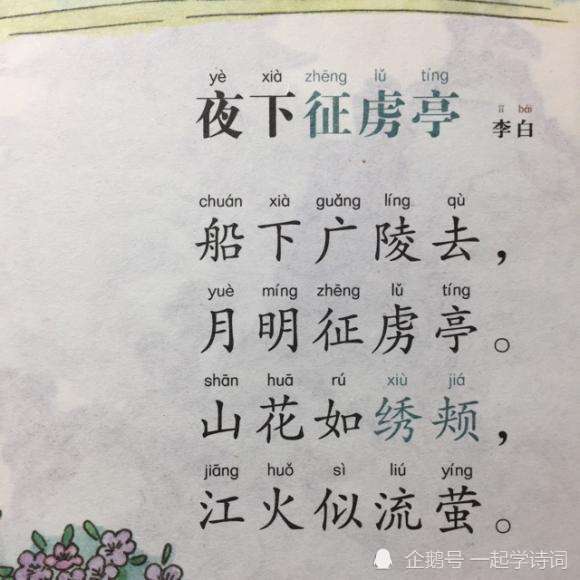 yè xià zhēng lǔ tíng
夜下征虏亭
lǐ bái
李白
chuán xià guǎng líng qù
船下广陵去，
yuè míng zhēng lǔ tíng
月明征虏亭。
shān huā rú xiù jiá
山花如绣颊，
jiāng huǒ sì liú yíng
江火似流萤。
企鹅号 一起学诗词